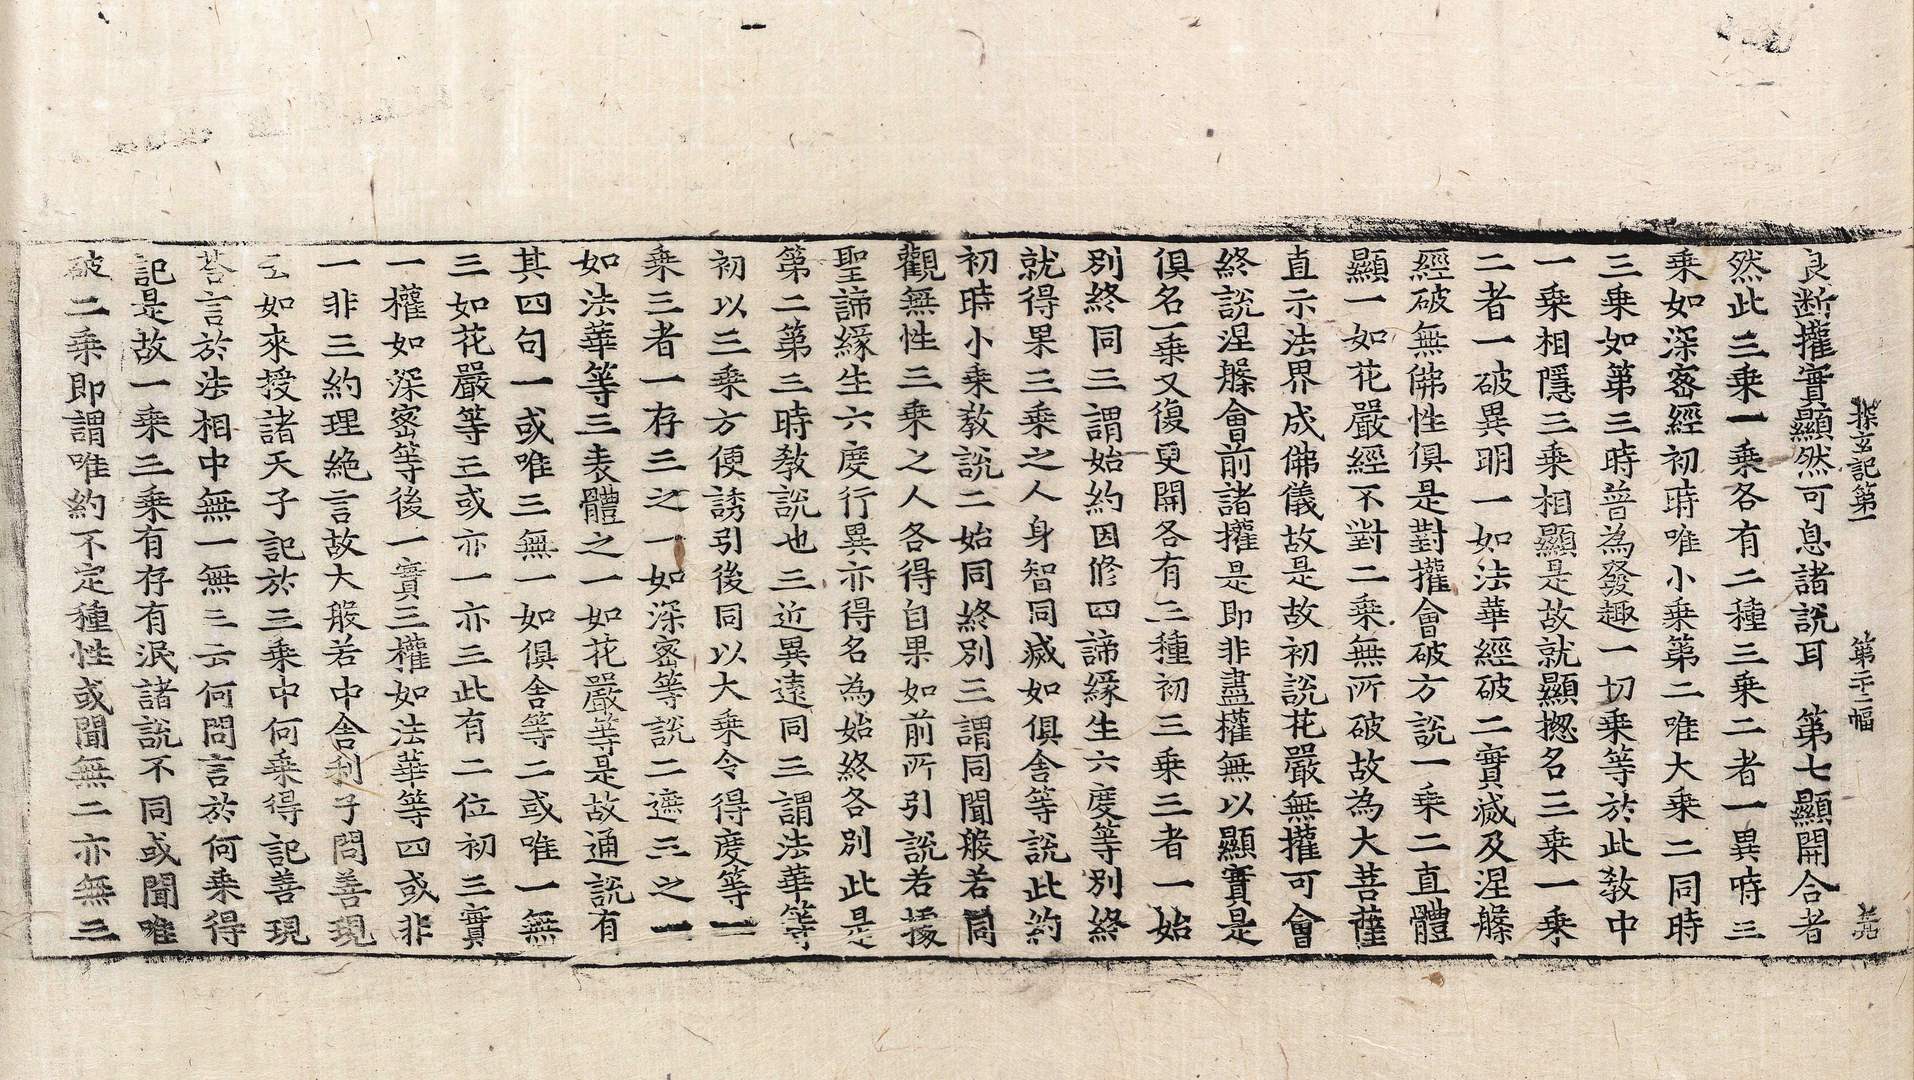 探玄記第一 第二十二幅
良斷權實顯然可息諸說耳 第七顯開合者
然此三乗一乗各有二種三乗二者一異時三
乗如深密經初時唯小乗第二唯大乗二同時
三乗如第三時普為發趣一切乗等於此敎中
一乗相隱三乗相顯是故就顯揔名三乗一乗
二者一破異明一如法華經破二實滅及涅槃
經破無佛性俱是對權會破方說一乗二直體
顯一如花嚴經不對二乗無所破故為大菩薩
直示法界成佛儀故是故初說花嚴無權可會
終說涅槃會前諸權是即非盡權無以顯實是
俱名一乗又復更開各有三種初三乗三者一始
別終同三謂始約因修四諦緣生六度等別終
就得果三乗之人身智同滅如俱舍等說此約
初時小乗敎說二始同終別三謂同聞般若同
觀無性三乗之人各得自果如前所引說若據
聖諦緣生六度行異亦得名為始終各別此是
第二第三時敎說也三近異遠同三謂法華等
初以三乗方便誘引後同以大乗令得度等一
乗三者一存三之一如深密等說二遮三之一
如法華等三表體之一如花嚴等是故通說有
其四句一或唯三無一如俱舍等二或唯一無
三如花嚴等三或亦一亦三此有二位初三實
一權如深密等後一實三權如法華等四或非
一非三約理絶言故大般若中舍利子問善現
云如來授諸天子記於三乗中何乗得記善現
荅言於法相中無一無三云何問言於何乗得
記是故一乗三乗有存有泯諸說不同或聞唯
破二乗即謂唯約不定種性或聞無二亦無三